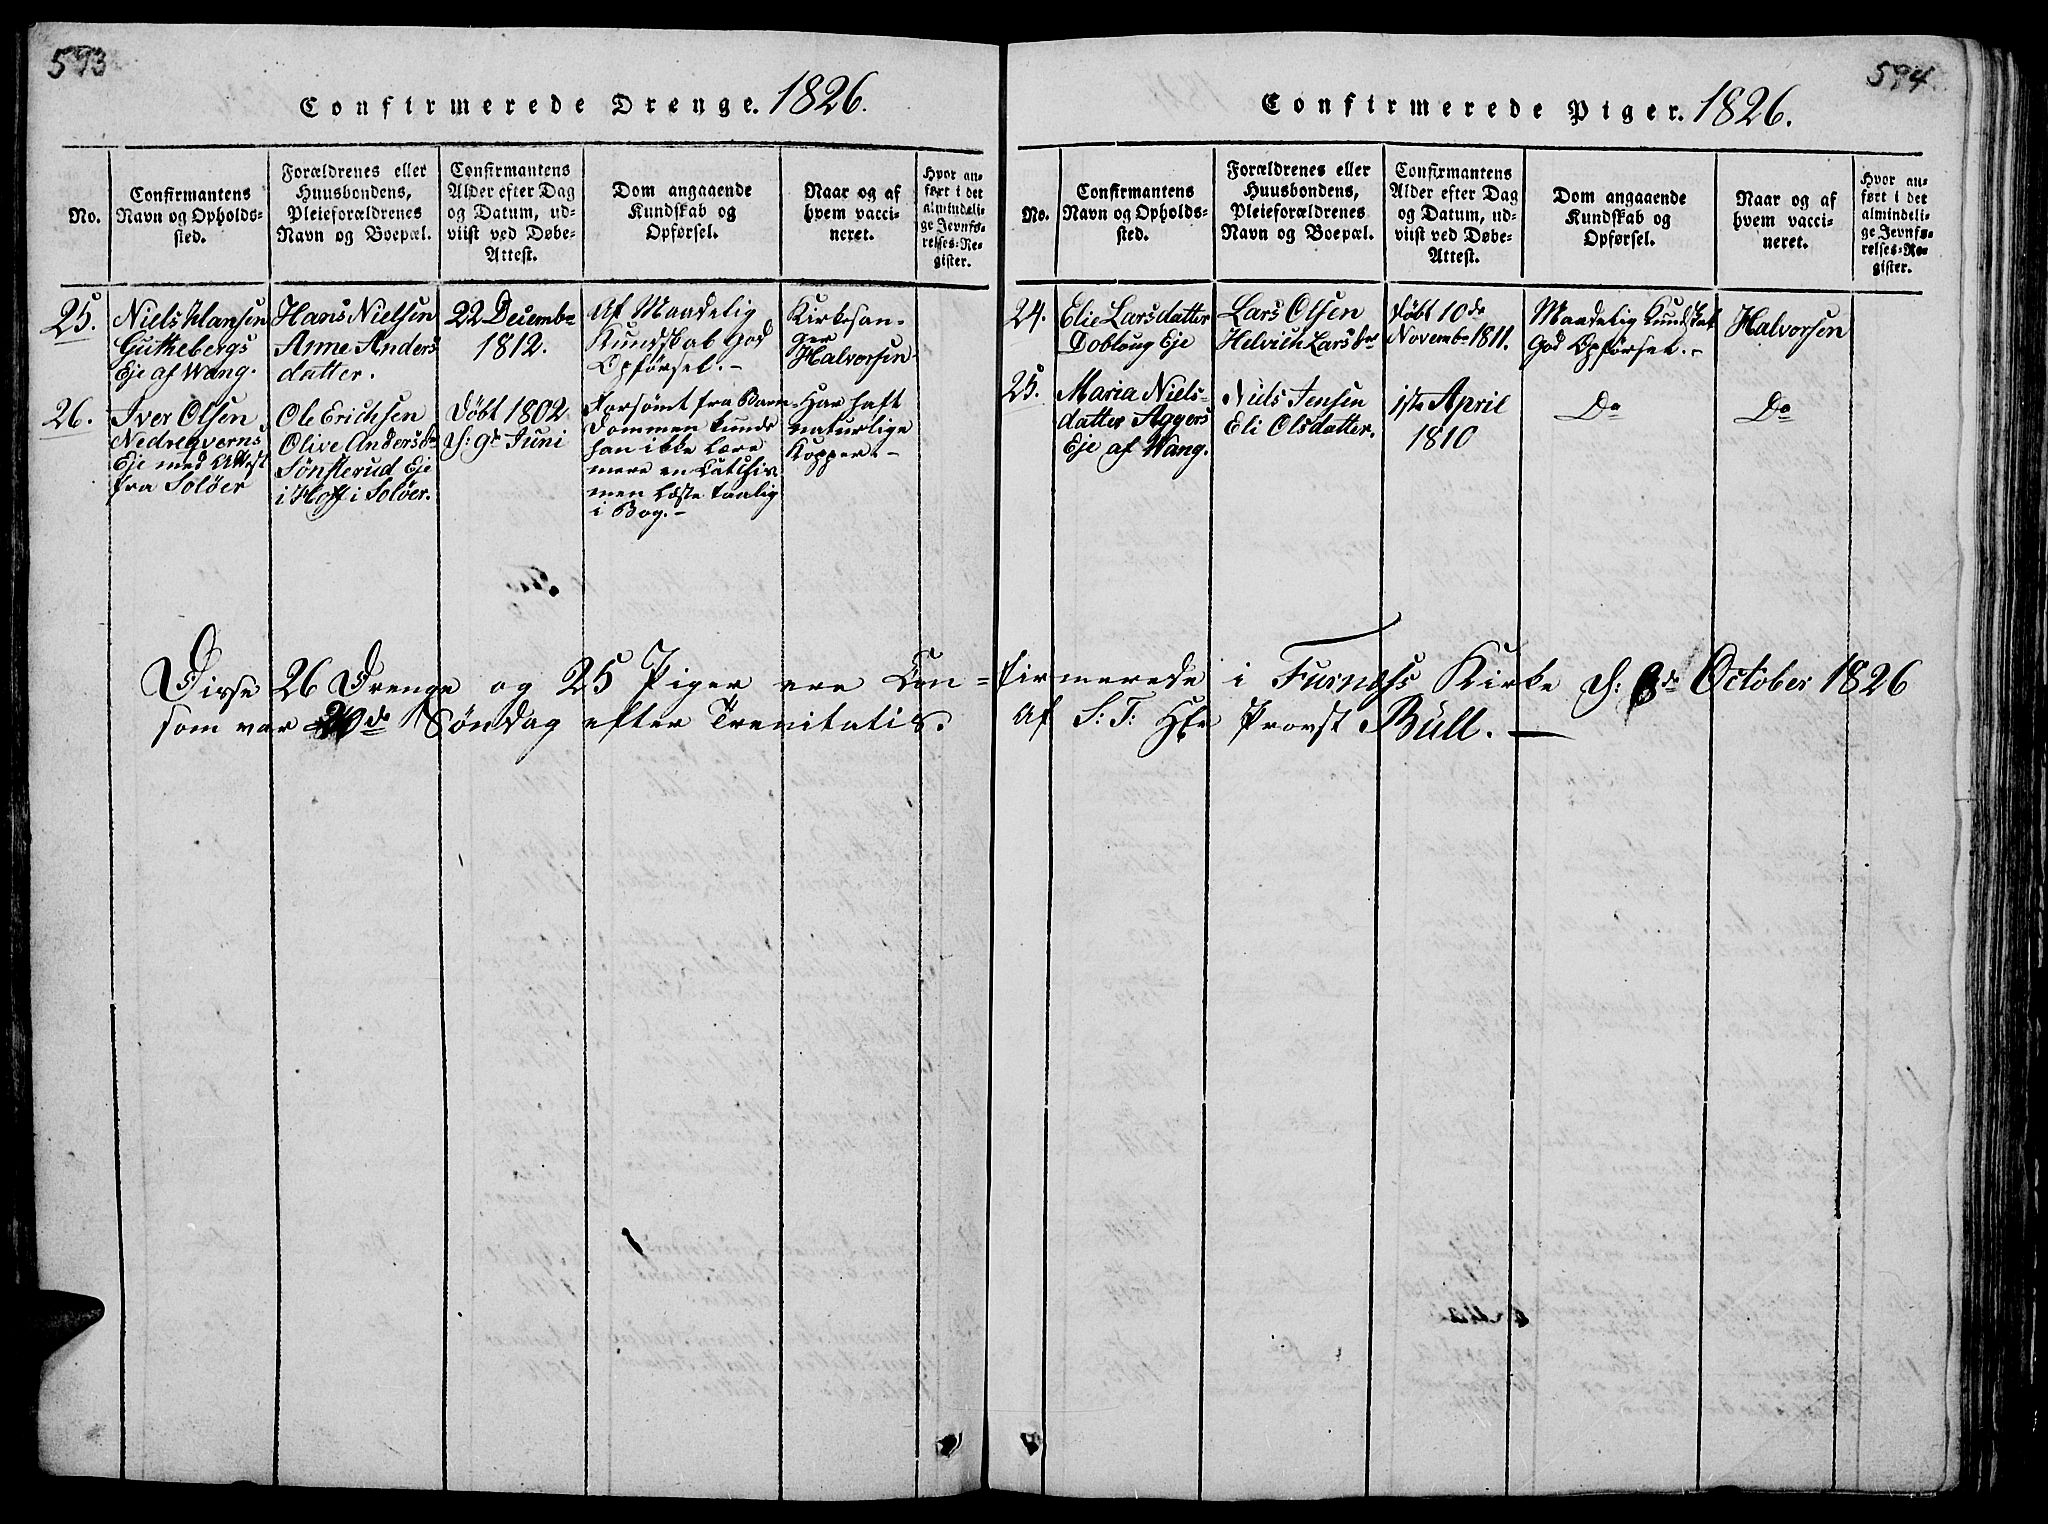 593
Confirmerede Drenge. 1826.
No.
Confirmantens
Navn og Opholds-
sted.
Forældrenes eller
Huusbondens,
Pleieforældrenes
Navn og Boepæl.
Confirmantens
Alder efter Dag
og Datum, ud-
viist ved Døbe-
Attest.
Dom angaaende
Kundskab og
Opførsel.
Naar og af
hvem vacci-
neret.
Hvor an-
ført i det
almindeli-
ge Jevnfø-
relses-Re-
gister.
25.
Niels Hansen
Guthebergs
Eje af Wang.
Hans Nielsen
Anne Anders
datter.
22 Decemb
1812.
Af Maadelig
Kundskab God
Opførsel.-
Kirkesan-
ger
Halvorsen
26.
Iver Olsen
Nedre
Eje med Attest
fra Soløer
Ole Erichsen
Olive Andersd
Sønsterud Eje
i Hoff i Soløer.
Døbt 1802
d: 9de Juni
Forsømt fra Barn-
dommen kunde
han ikke lære
mere en Catchis-
men læste taalig
i Bog.-
Har haft
naturlige
Kopper.-
Disse 26 Drenge og 25 Piger ere Con=
som var 20de Søndag efter Trenitatis.
594
Confirmerede Piger. 1826.
No.
Confirmantens
Navn og Opholds-
sted.
Forældrenes eller
Huusbondens,
Pleieforældrenes
Navn og Boepæl.
Confirmantens
Alder efter Dag
og Datum, ud-
viist ved Døbe-
Attest.
Dom angaaende
Kundskab og
Opførsel.
Naar og af
hvem vacci-
neret.
Hvor an-
ført i det
almindeli-
ge Jevnfø-
relses-Re-
gister.
24.
Elie Larsdatter
Dobloug Eje
Lars Olsen
Helvich Larsdr
Døbt 10de
Novembr 1811.
Maadelig Kundskab
God Opførsel.-
Halvorsen
25.
Maria Niels-
datter Aggers
Eje af Wang.
Niels Jensen
Eli Olsdatter.
1ste April
1810
Do
Do
firmerede i Furnæss Kirke d: 8de October 1826
Af S: T: Hr Provst Büll.-